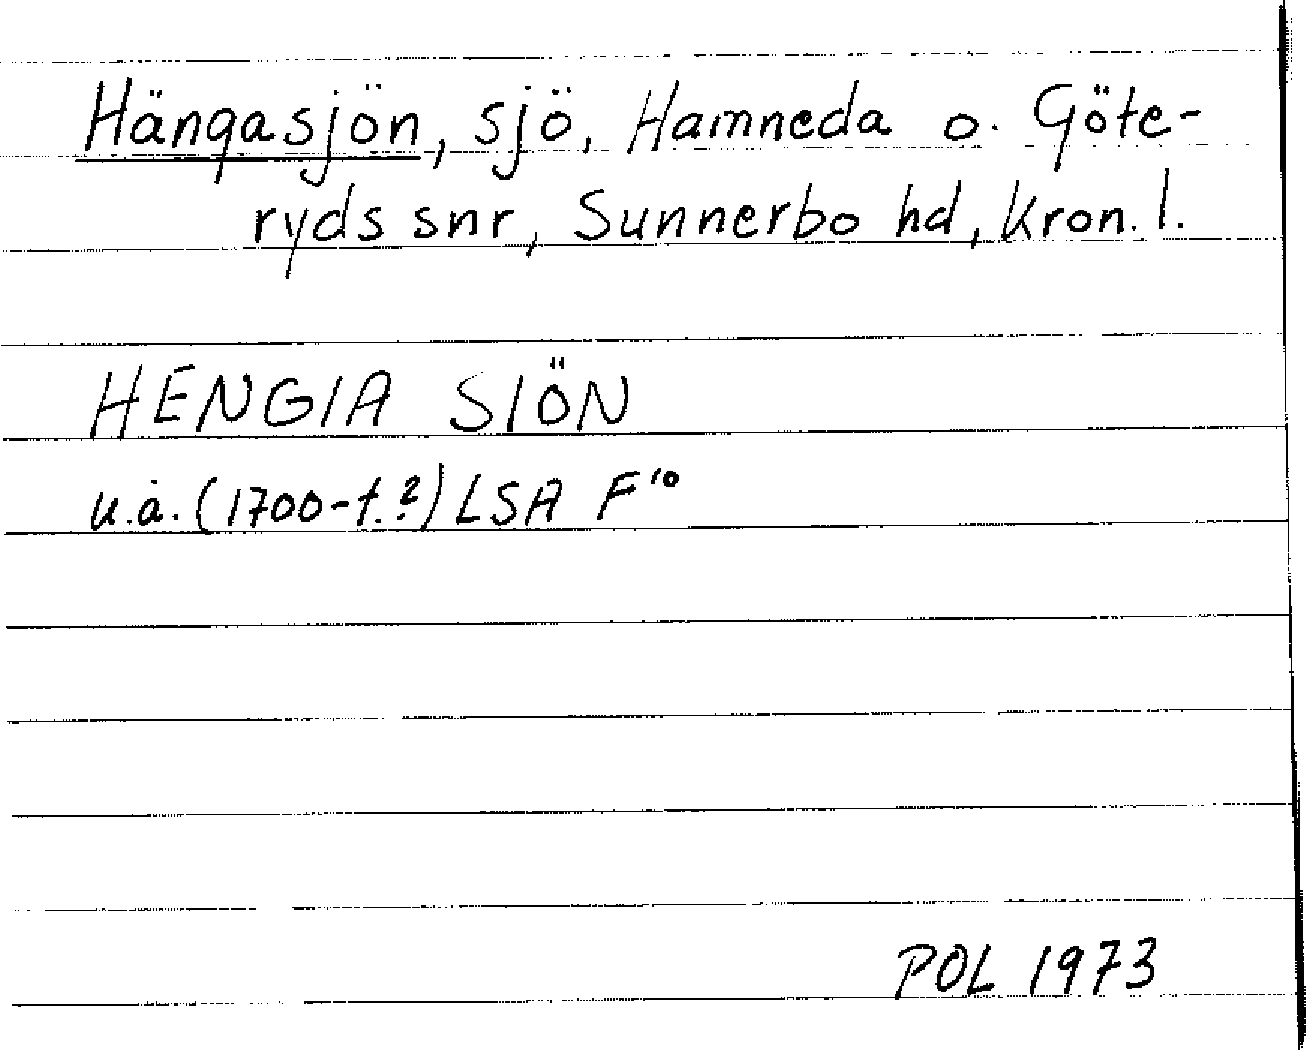 Hängasjön, sjö, Hamneda o. Göte-
ryds snr, Sunnerbo hd, Kron. l.
HENGIA SIÖN
u.å. (1700-t.?) LSA F¹⁰
POL 1973